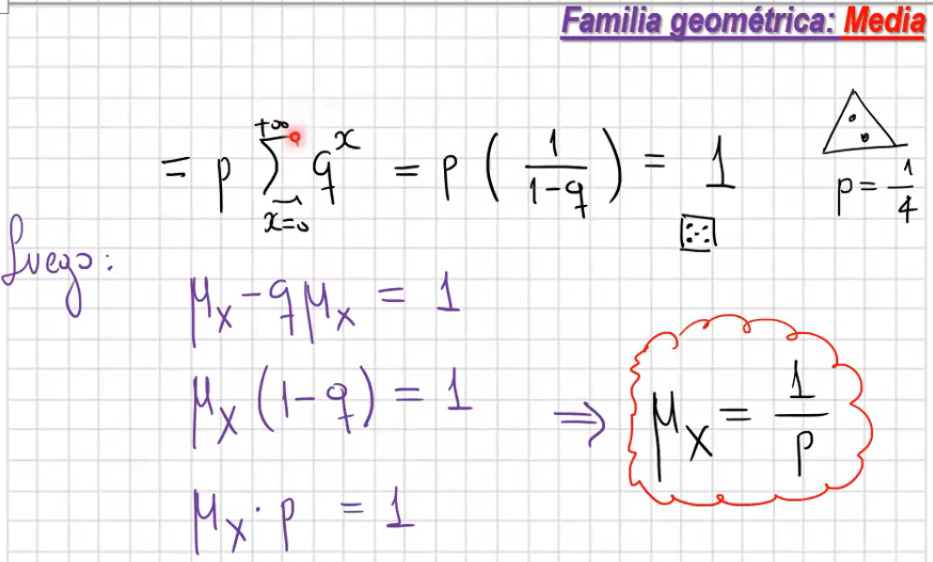 Familia geométrica: Media
= p ∑_{x=0}^{+∞} q^x = p ( 1/(1-q) ) = 1
p = 1/4
Luego:
μ_X - q μ_X = 1
μ_X (1-q) = 1
⇒ μ_X = 1/p
μ_X · p = 1